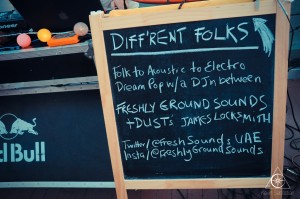 Pioneer
DIFF'RENT FOLKS
Folk to Acoustic to Electro
Dream Pop w/a DJ n between
FRESHLY GROUND SOUNDS
+ DUST's JAMES LOCKSMITH
Twitter/@FreshSounds UAE
Insta/@FreshlyGroundSounds
Red Bull